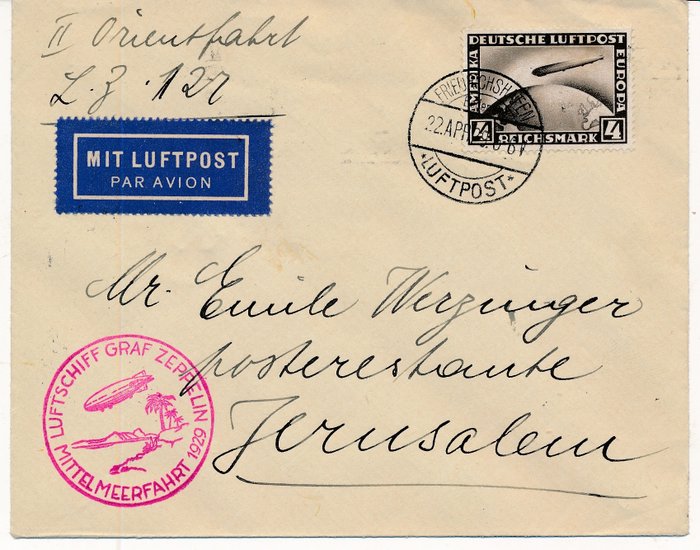 II Orientfahrt
L.Z. 127
DEUTSCHE LUFTPOST
AMERIKA
EUROPA
4 REICHSMARK 4
FRIEDRICHSHAFEN
22.APR
LUFTPOST
MIT LUFTPOST
PAR AVION
Mr. Emile Werzinger
posterestante
Jerusalem
LUFTSCHIFF GRAF ZEPPELIN
MITTELMEERFAHRT 1929